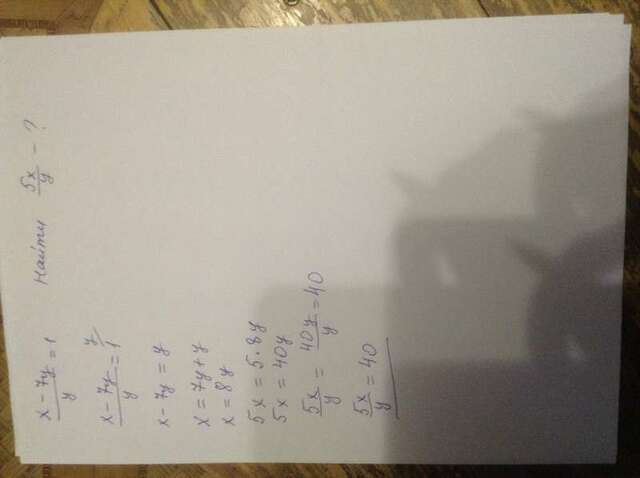 x - 7y / y = 1 Найти 5x / y - ?
x - 7y / y = 1 y/
x - 7y = y
x = 7y + y
x = 8y
5x = 5 · 8y
5x = 40y
5x / y = 40y / y = 40
5x / y = 40